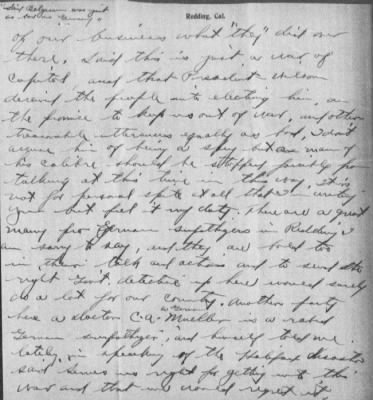 "Said Belgium was just
as bad as Germany"
Redding, Cal.
of our business what "they" did over
there. Said this is just a war of
Capital and that President Wilson
deceived the people into electing him, on
the promise to keep us out of war, and other
treasonable utterances equally as bad, I don't
accuse him of being a spy but a man of
his calibre should be stopped forcibly from
talking at this time in this way, It is
not for personal spite at all that I'm writing
you but feel it my duty. There are a great
many pro German sympathizers in Redding I
am sorry to say, and they are bold too
in their talk and actions and to send the
right Gov't. detective up here would surely
do a lot for our Country. Another party
here a doctor C.A. Mueller is a rabid
a German
German sympathizer, and himself told me
lately, in speaking of the Halifax disaster
said serves us right for getting into this
war and that we would regret it.